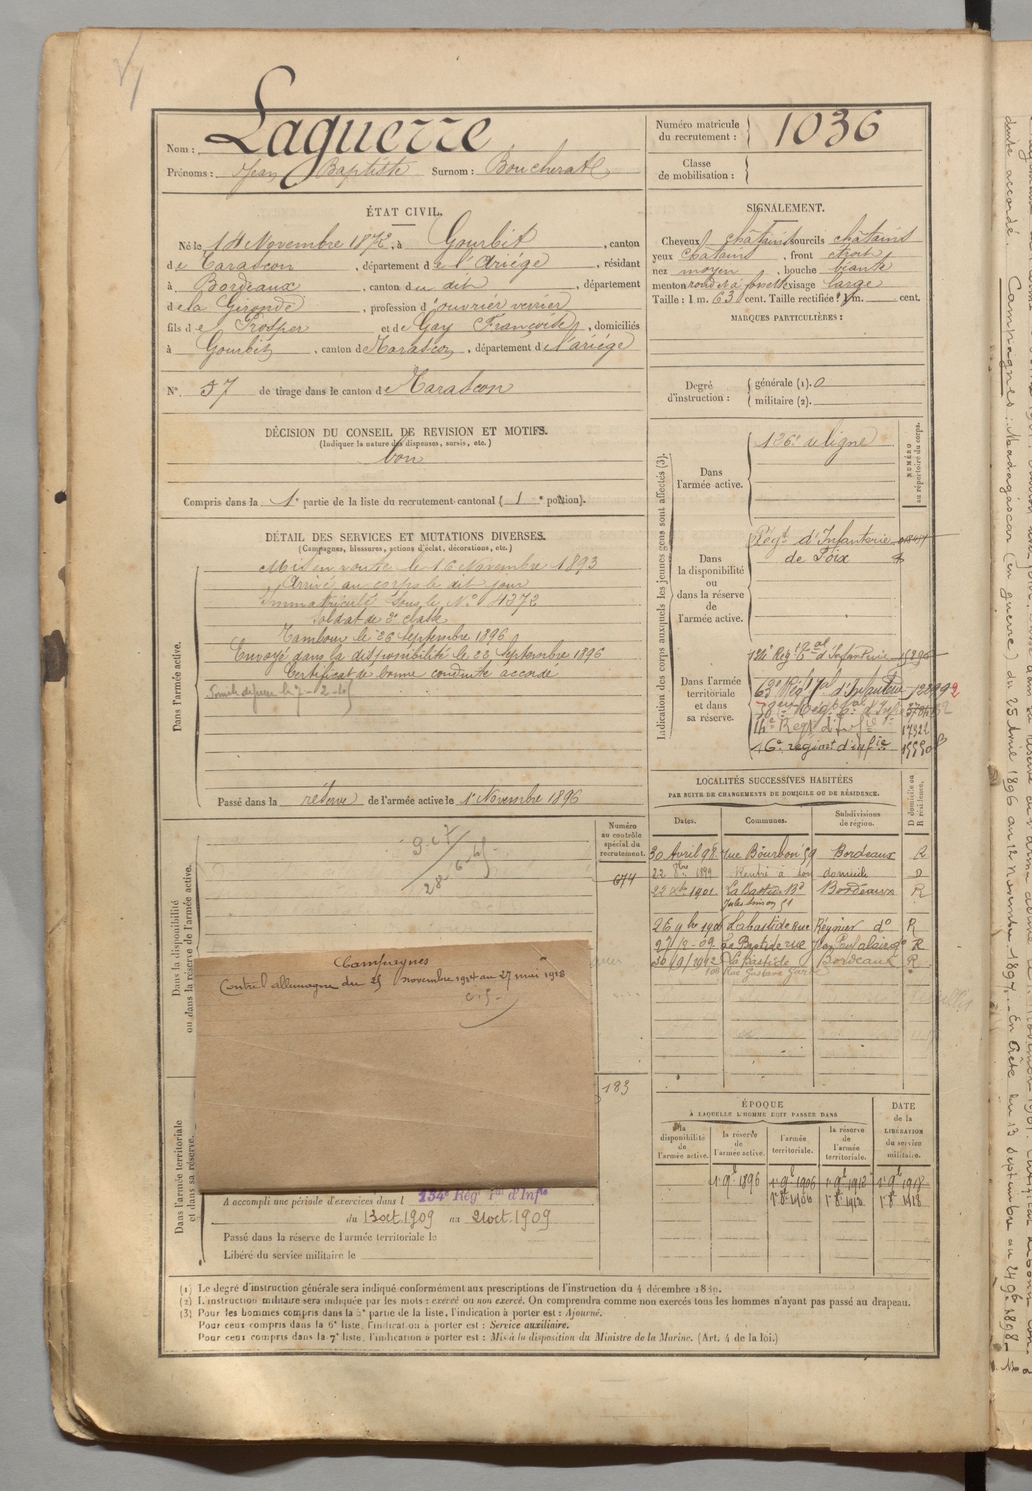 Nom : Laguerre
Prénoms : Jean Baptiste Surnom : Boucherat
Numéro matricule du recrutement : 1036
Classe de mobilisation :
ÉTAT CIVIL.
Né le 14 Novembre 1872, à Gourbit, canton
de Tarascon, département de l'Ariége, résidant
à Bordeaux, canton du dit, département
de la Gironde, profession d'ouvrier verrier
fils de Prosper et de Gay Françoise, domiciliés
à Gourbit, canton de Tarascon, département de l'ariége
N° 37 de tirage dans le canton de Tarascon
DÉCISION DU CONSEIL DE REVISION ET MOTIFS.
(Indiquer la nature des dispenses, sursis, etc.)
bon
Compris dans la 1e partie de la liste du recrutement cantonal (1e portion).
SIGNALEMENT.
Cheveux châtains sourcils châtains
yeux châtains, front étroit
nez moyen, bouche béante
menton rond et à fossette visage large
Taille : 1 m. 63 cent. Taille rectifiée : 1 m. cent.
MARQUES PARTICULIÈRES :
Degré d'instruction :
générale (1). 0
militaire (2).
DÉTAIL DES SERVICES ET MUTATIONS DIVERSES.
(Campagnes, blessures, actions d'éclat, décorations, etc.)
Dans l'armée active.
Mis en route le 16 Novembre 1893
Arrivé au corps le dit jour
Immatriculé sous le N° 4372
Soldat de 2e classe
Tambour le 26 Septembre 1896
Envoyé dans la disponibilité le 22 Septembre 1896
Certificat de bonne conduite accordé
Passé dans la réserve de l'armée active le 1e Novembre 1896
Indication des corps auxquels les jeunes gens sont affectés (3).
NUMÉRO au répertoire du corps.
Dans l'armée active.
126e de ligne
Dans la disponibilité ou dans la réserve de l'armée active.
Régt d'Infanterie
de Foix
Dans l'armée territoriale et dans sa réserve.
134e Reg Tal d'Infanterie
Regt d'Infie
16e régimt d'infie
LOCALITÉS SUCCESSIVES HABITÉES
PAR SUITE DE CHANGEMENTS DE DOMICILE OU DE RÉSIDENCE.
Dates. Communes. Subdivisions de région. D domicile ou R résidence.
30 Avril 98 rue Bourbon 59 Bordeaux R
22 8bre 1899 Rentré à son domicile D
22 Xbre 1901 La Bastide Bd Bordeaux R
Jules Simon 51
26 9bre 1906 Labastide rue Régnier do R
27/2-09 La Bastide rue do R
30/9/1912 La Bastide Bordeaux R
Numéro au contrôle spécial du recrutement.
674
183
Dans la disponibilité ou dans la réserve de l'armée active.
Campagnes
Contre l'allemagne du 25 novembre 1914 au 27 mai 1918
Dans l'armée territoriale et dans sa réserve.
A accompli une période d'exercices dans l 134e Reg Tal d'Infie
du 13 oct. 1909 au 21 oct. 1909
Passé dans la réserve de l'armée territoriale le
Libéré du service militaire le
ÉPOQUE
À LAQUELLE L'HOMME DOIT PASSER DANS
DATE de la LIBÉRATION du service militaire.
la disponibilité de l'armée active. la réserve de l'armée active. l'armée territoriale. la réserve de l'armée territoriale.
1e 9bre 1896 1e 9bre 1906 1e 9bre 1912 1e 9bre 1918
1e 8bre 1906 1e 8bre 1912 1e 8bre 1918
(1) Le degré d'instruction générale sera indiqué conformément aux prescriptions de l'instruction du 4 décembre 1830.
(2) L'instruction militaire sera indiquée par les mots : exercé ou non exercé. On comprendra comme non exercés tous les hommes n'ayant pas passé au drapeau.
(3) Pour les hommes compris dans la 5e partie de la liste, l'indication à porter est : Ajourné.
Pour ceux compris dans la 6e liste, l'indication à porter est : Service auxiliaire.
Pour ceux compris dans la 7e liste, l'indication à porter est : Mis à la disposition du Ministre de la Marine. (Art. 4 de la loi.)
Campagnes : Madagascar (en guerre) du 25 Avril 1896 au 12 Novembre 1897. - En Crète du 13 Septembre au 1898